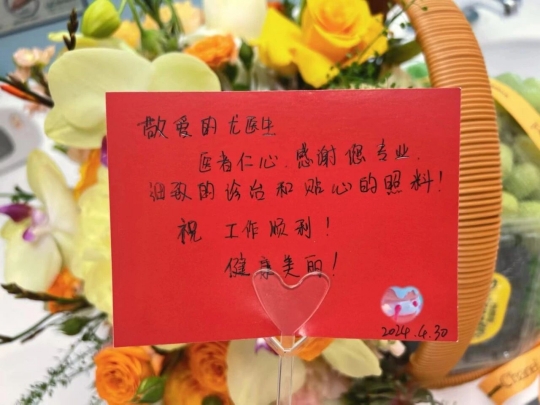 敬爱的尤医生
医者仁心.感谢您专业.
细致的诊治和贴心的照料!
祝 工作顺利!
健康美丽!
2024.4.30